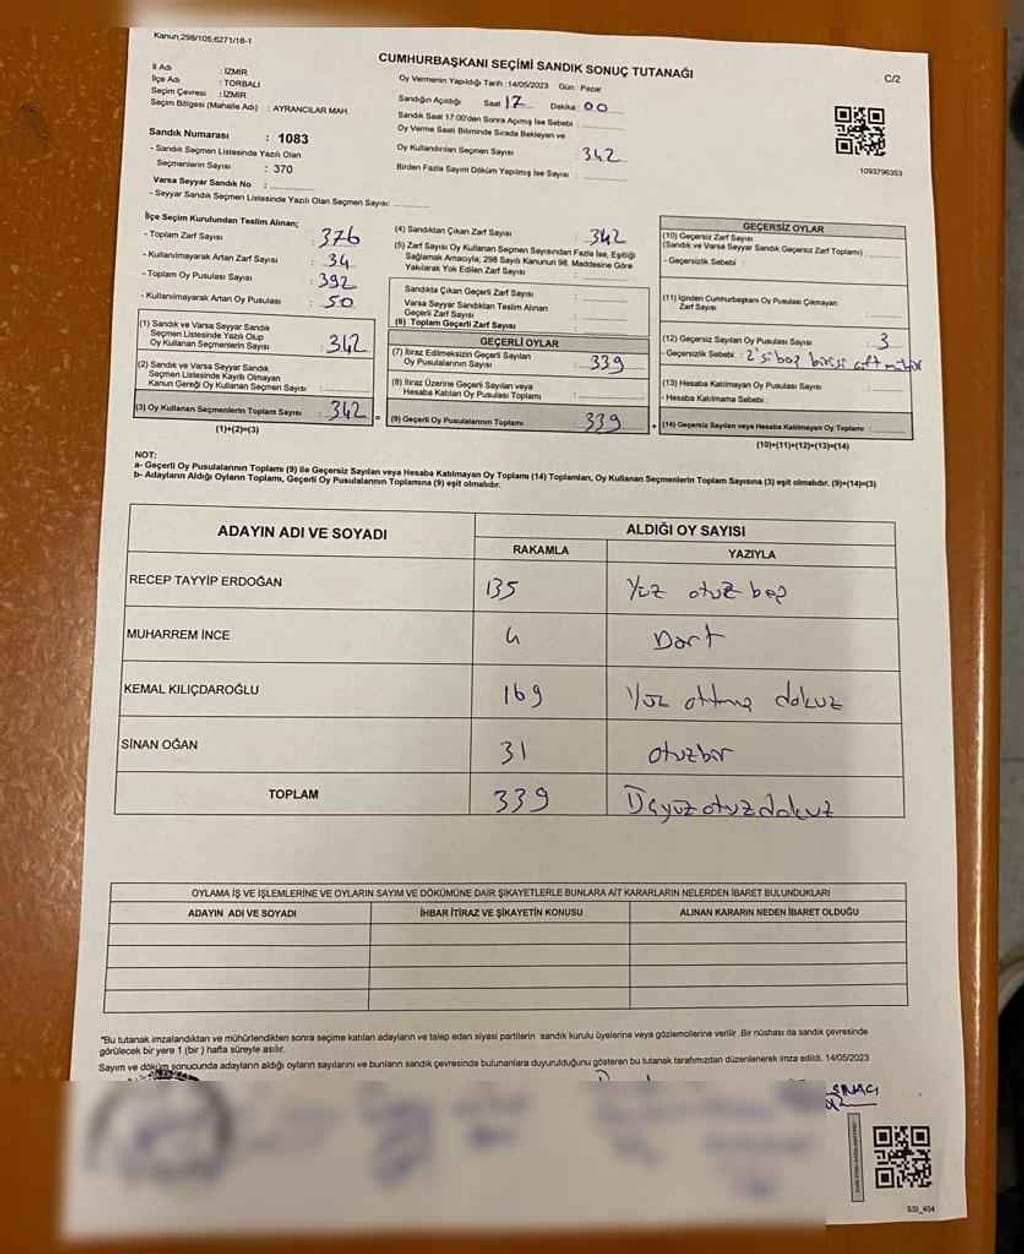 Kanun;298/105,6271/18-1
CUMHURBAŞKANI SEÇİMİ SANDIK SONUÇ TUTANAĞI
C/2
İl Adı : İZMİR
İlçe Adı : TORBALI
Seçim Çevresi : İZMİR
Seçim Bölgesi (Mahalle Adı) : AYRANCILAR MAH.
Sandık Numarası : 1083
- Sandık Seçmen Listesinde Yazılı Olan
Seçmenlerin Sayısı : 370
Varsa Seyyar Sandık No :
- Seyyar Sandık Seçmen Listesinde Yazılı Olan Seçmen Sayısı:
Oy Vermenin Yapıldığı Tarih :14/05/2023 Gün: Pazar
Sandığın Açıldığı Saat 17 Dakika 00
Sandık Saat 17:00'den Sonra Açılmış İse Sebebi :
Oy Verme Saati Bitiminde Sırada Bekleyen ve
Oy Kullandırılan Seçmen Sayısı : 342
Birden Fazla Sayım Döküm Yapılmış İse Sayısı :
1093796353
İlçe Seçim Kurulundan Teslim Alınan;
- Toplam Zarf Sayısı : 376
- Kullanılmayarak Artan Zarf Sayısı : 34
- Toplam Oy Pusulası Sayısı : 392
- Kullanılmayarak Artan Oy Pusulası : 50
(1) Sandık ve Varsa Seyyar Sandık
Seçmen Listesinde Yazılı Olup
Oy Kullanan Seçmenlerin Sayısı : 342
(2) Sandık ve Varsa Seyyar Sandık
Seçmen Listesinde Kayıtlı Olmayan
Kanun Gereği Oy Kullanan Seçmen Sayısı :
(3) Oy Kullanan Seçmenlerin Toplam Sayısı : 342 =
(1)+(2)=(3)
(4) Sandıktan Çıkan Zarf Sayısı : 342
(5) Zarf Sayısı Oy Kullanan Seçmen Sayısından Fazla İse, Eşitliği
Sağlamak Amacıyla; 298 Sayılı Kanunun 98. Maddesine Göre
Yakılarak Yok Edilen Zarf Sayısı :
Sandıkta Çıkan Geçerli Zarf Sayısı :
Varsa Seyyar Sandıktan Teslim Alınan
Geçerli Zarf Sayısı :
(6) Toplam Geçerli Zarf Sayısı :
GEÇERLİ OYLAR
(7) İtiraz Edilmeksizin Geçerli Sayılan
Oy Pusulalarının Sayısı : 339
(8) İtiraz Üzerine Geçerli Sayılan veya
Hesaba Katılan Oy Pusulası Toplamı :
(9) Geçerli Oy Pusulalarının Toplamı : 339 +
GEÇERSİZ OYLAR
(10) Geçersiz Zarf Sayısı
(Sandık ve Varsa Seyyar Sandık Geçersiz Zarf Toplamı)
- Geçersizlik Sebebi :
(11) İçinden Cumhurbaşkanı Oy Pusulası Çıkmayan
Zarf Sayısı :
(12) Geçersiz Sayılan Oy Pusulası Sayısı : 3
- Geçersizlik Sebebi : 2'si boş birisi çift mühür
(13) Hesaba Katılmayan Oy Pusulası Sayısı :
- Hesaba Katılmama Sebebi :
(14) Geçersiz Sayılan veya Hesaba Katılmayan Oy Toplamı :
(10)+(11)+(12)+(13)=(14)
NOT:
a- Geçerli Oy Pusulalarının Toplamı (9) ile Geçersiz Sayılan veya Hesaba Katılmayan Oy Toplamı (14) Toplamları, Oy Kullanan Seçmenlerin Toplam Sayısına (3) eşit olmalıdır. (9)+(14)=(3)
b- Adayların Aldığı Oyların Toplamı, Geçerli Oy Pusulalarının Toplamına (9) eşit olmalıdır.
ADAYIN ADI VE SOYADI ALDIĞI OY SAYISI
RAKAMLA YAZIYLA
RECEP TAYYİP ERDOĞAN 135 Yüz otuz beş
MUHARREM İNCE 4 Dört
KEMAL KILIÇDAROĞLU 169 Yüz altmış dokuz
SİNAN OĞAN 31 otuzbir
TOPLAM 339 Üçyüzotuzdokuz
OYLAMA İŞ VE İŞLEMLERİNE VE OYLARIN SAYIM VE DÖKÜMÜNE DAİR ŞİKAYETLERLE BUNLARA AİT KARARLARIN NELERDEN İBARET BULUNDUKLARI
ADAYIN ADI VE SOYADI İHBAR İTİRAZ VE ŞİKAYETİN KONUSU ALINAN KARARIN NEDEN İBARET OLDUĞU
"Bu tutanak imzalandıktan ve mühürlendikten sonra seçime katılan adayların ve talep eden siyasi partilerin sandık kurulu üyelerine veya gözlemcilerine verilir .Bir nüshası da sandık çevresinde
görülecek bir yere 1 (bir ) hafta süreyle asılır.
Sayım ve döküm sonucunda adayların aldığı oyların sayılarını ve bunların sandık çevresinde bulunanlara duyurulduğunu gösteren bu tutanak tarafımızdan düzenlenerek imza edildi. 14/05/2023
SSI_404